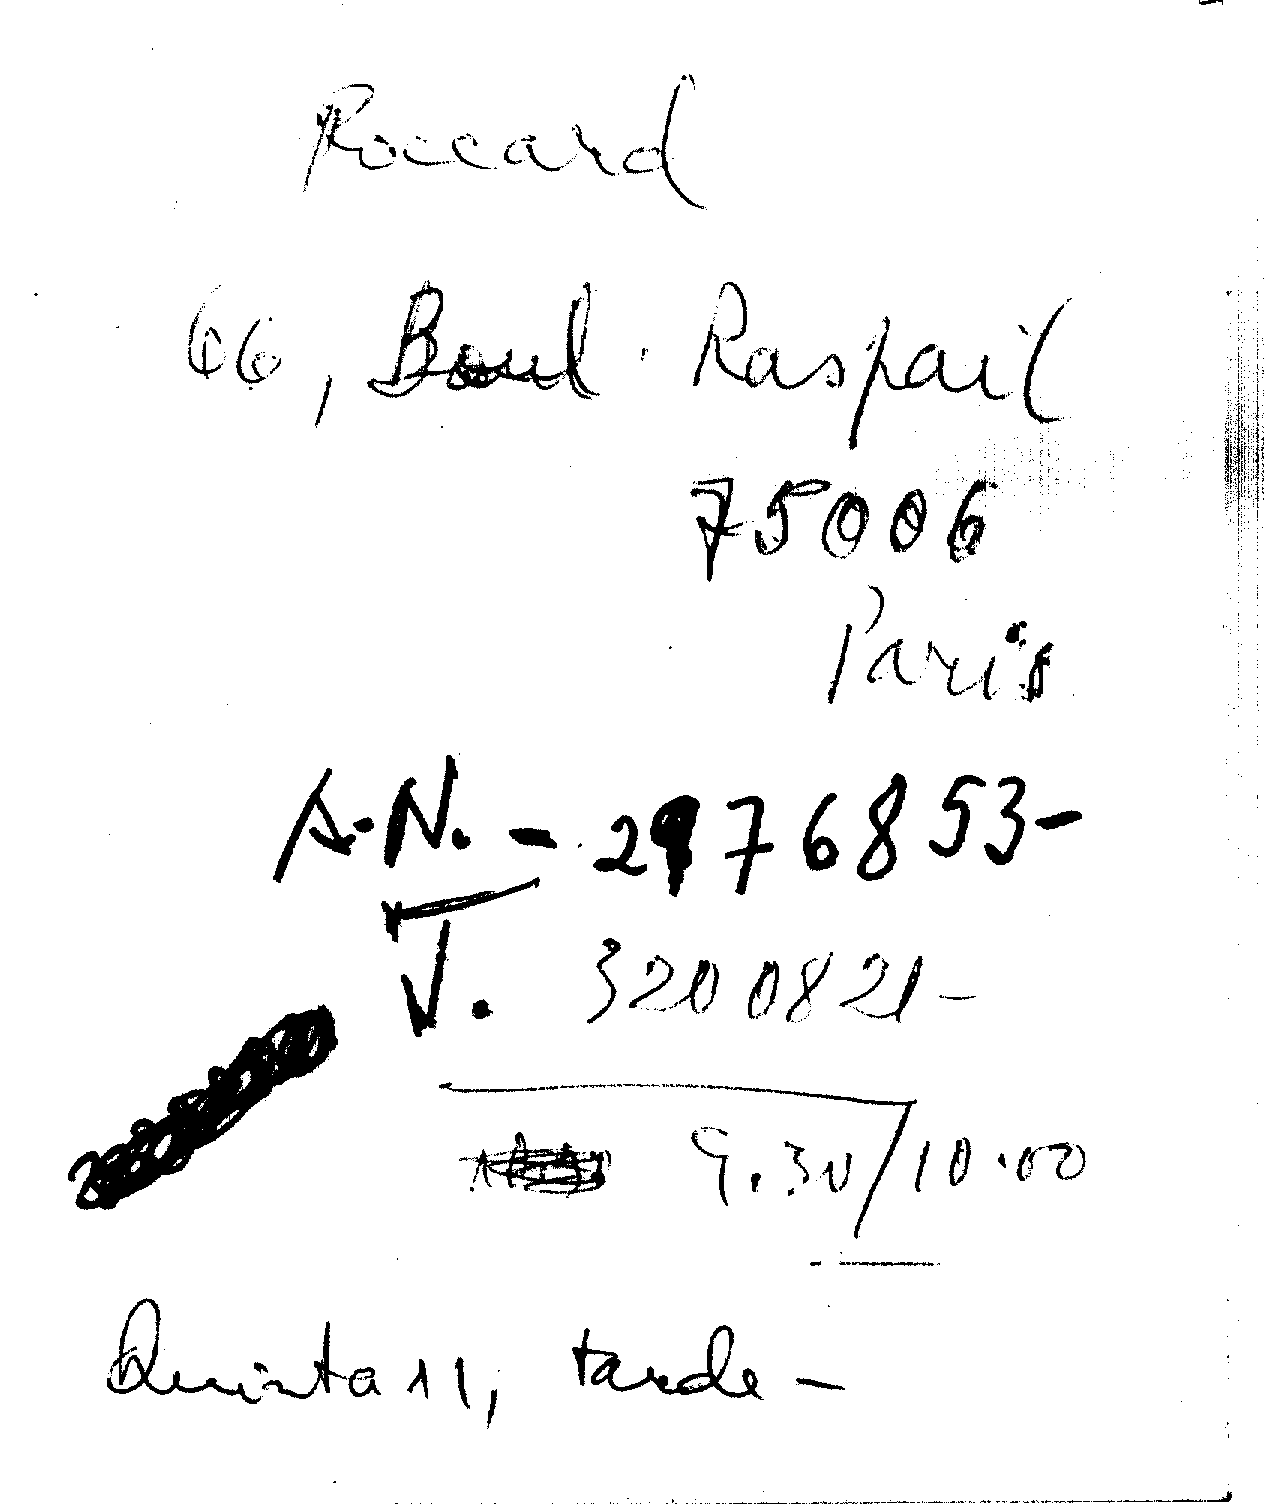 Roccard
66, Boul. Raspail
75006
Paris
A.N. - 2976853-
J. 3200821-
9.30/10.00
Quinta 11, tarde -